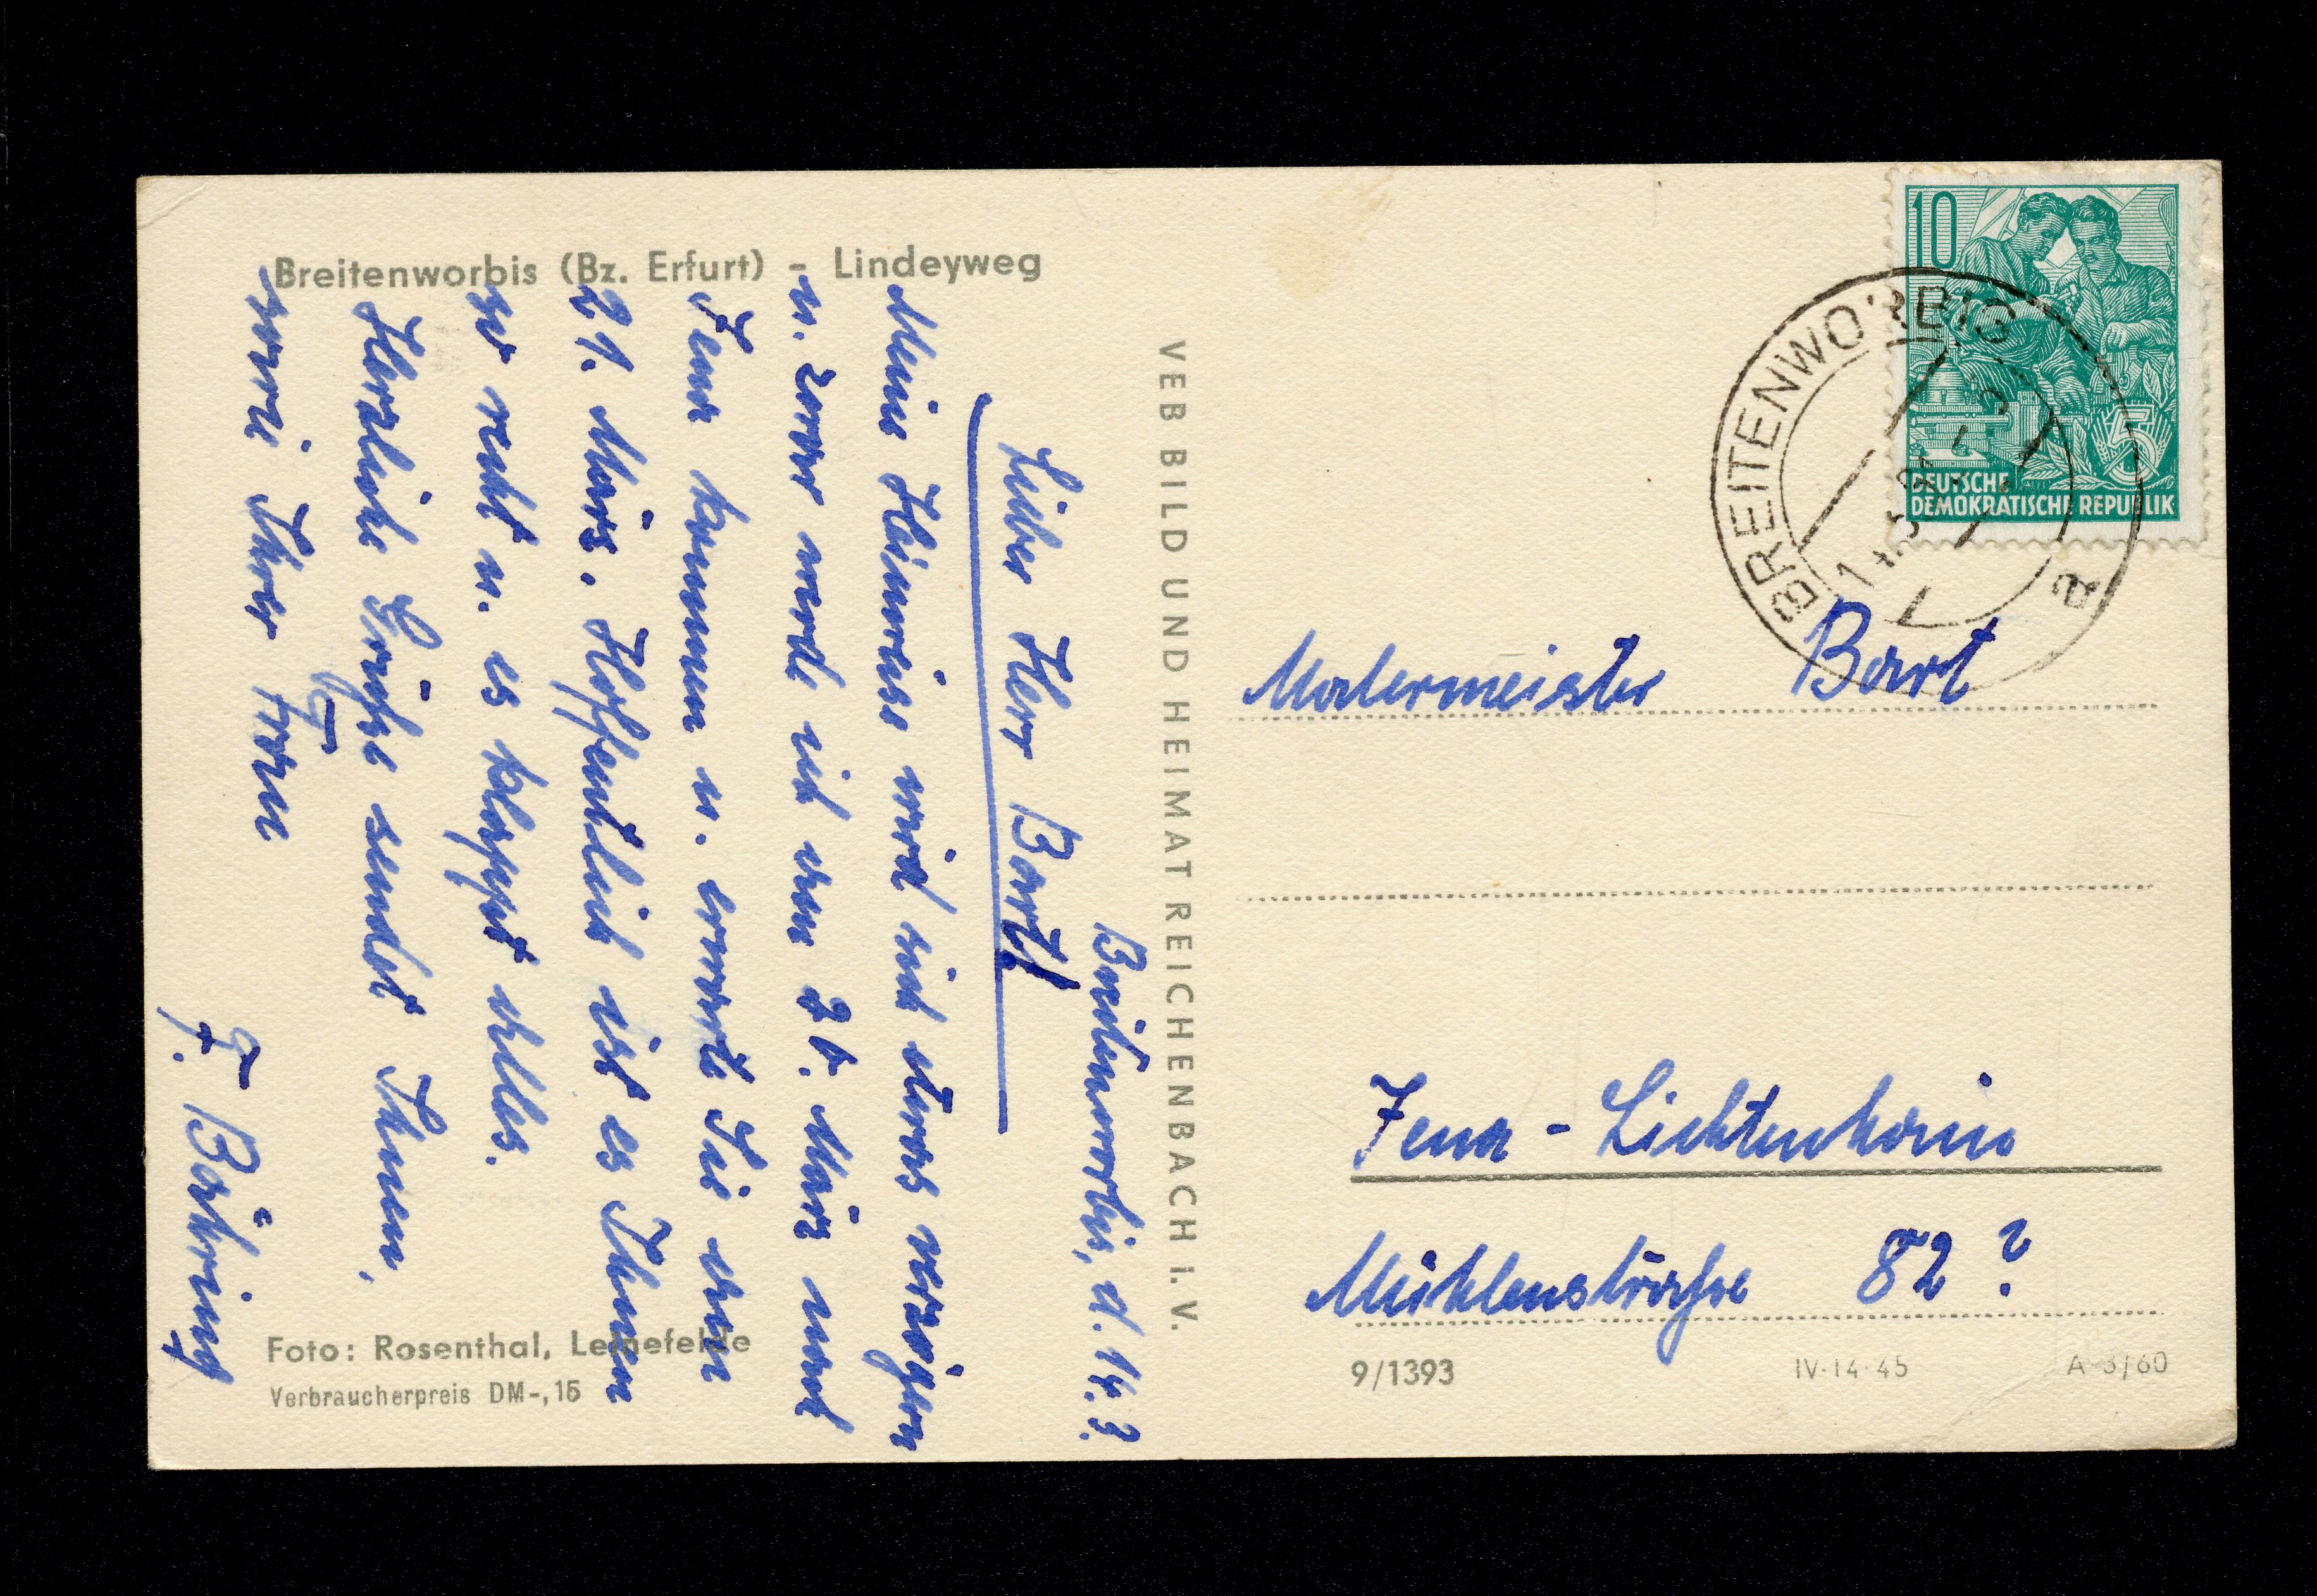 Breitenworbis (Bz. Erfurt) - Lindeyweg
Breitenworbis, d. 14. 3.
Lieber Herr Bart!
Meine Heimreise wird sich etwas verzögern
u. zwar werde ich am 20. März nach
Jena kommen u. erwarte Sie am
21. März. Hoffentlich ist es Ihnen
so recht u. es klappt alles.
Herzliche Grüße sendet Ihnen,
sowie Ihrer Frau
F. Bühring
VEB BILD UND HEIMAT REICHENBACH I. V.
Foto: Rosenthal, Leinefelde
Verbraucherpreis DM -,15
10
DEUTSCHE
DEMOKRATISCHE REPUBLIK
5
BREITENWORBIS
a
Malermeister Bart
Jena - Lichtenhain
Mühlenstraße 82 ?
9/1393 IV-14-45 A 3/60